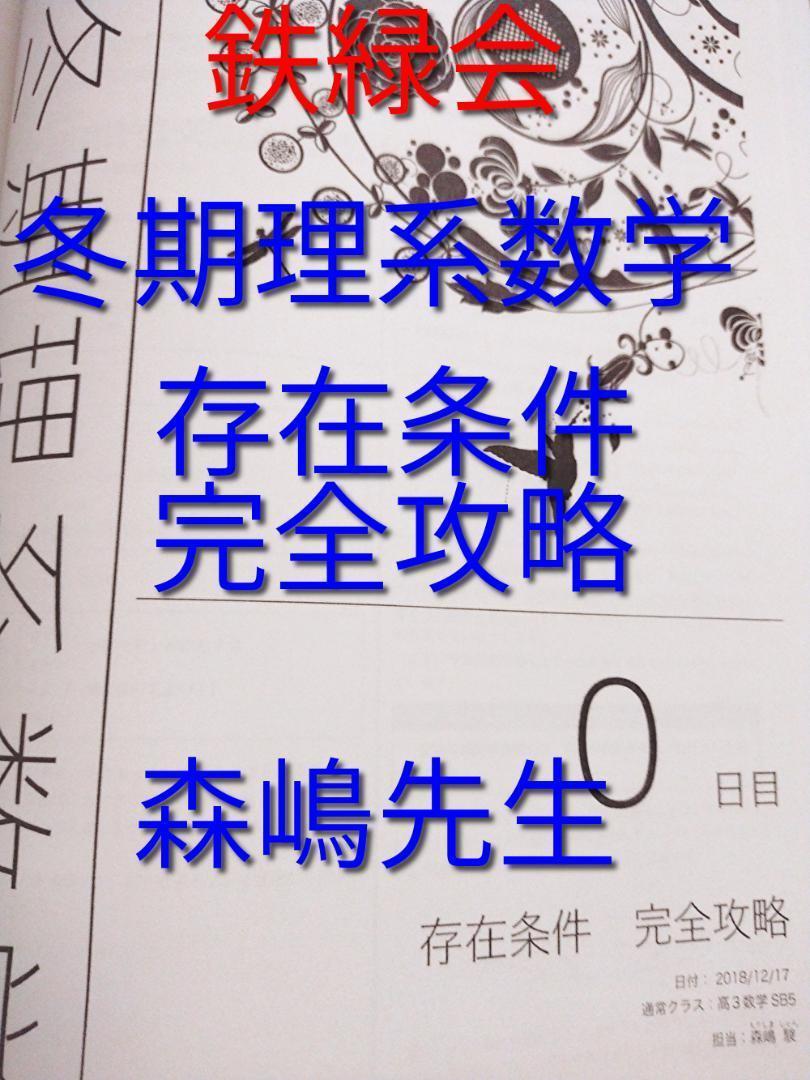 鉄緑会
冬期理系数学
存在条件
完全攻略
森嶋先生
冬期理系数学
0日目
存在条件　完全攻略
日付：2018/12/17
通常クラス：高3数学SB5
担当：森嶋 駿